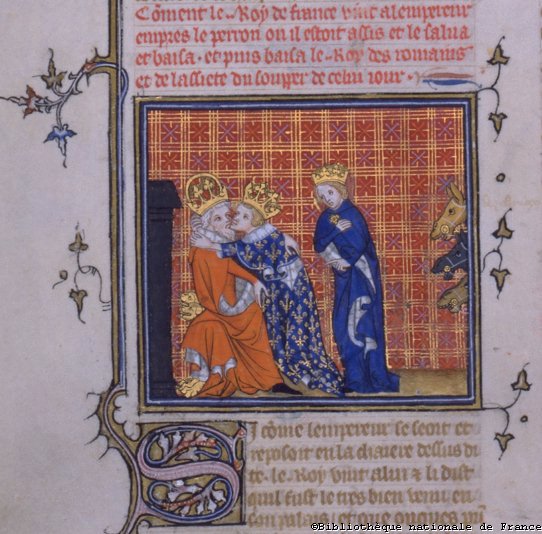 Cõment le Roy de france vint a lempereur
empres le perron ou il estoit assis et le salua
et baisa · et puis baisa le Roy des romains
et de lassiete du souper de celui iour ·
Si cõme lempereur se seoit et
reposoit en la chaiere dessus di
te · le Roy vint a lui & li dist
quil fust le tres bien venu en
son palais / et que onques
©Bibliothèque nationale de France